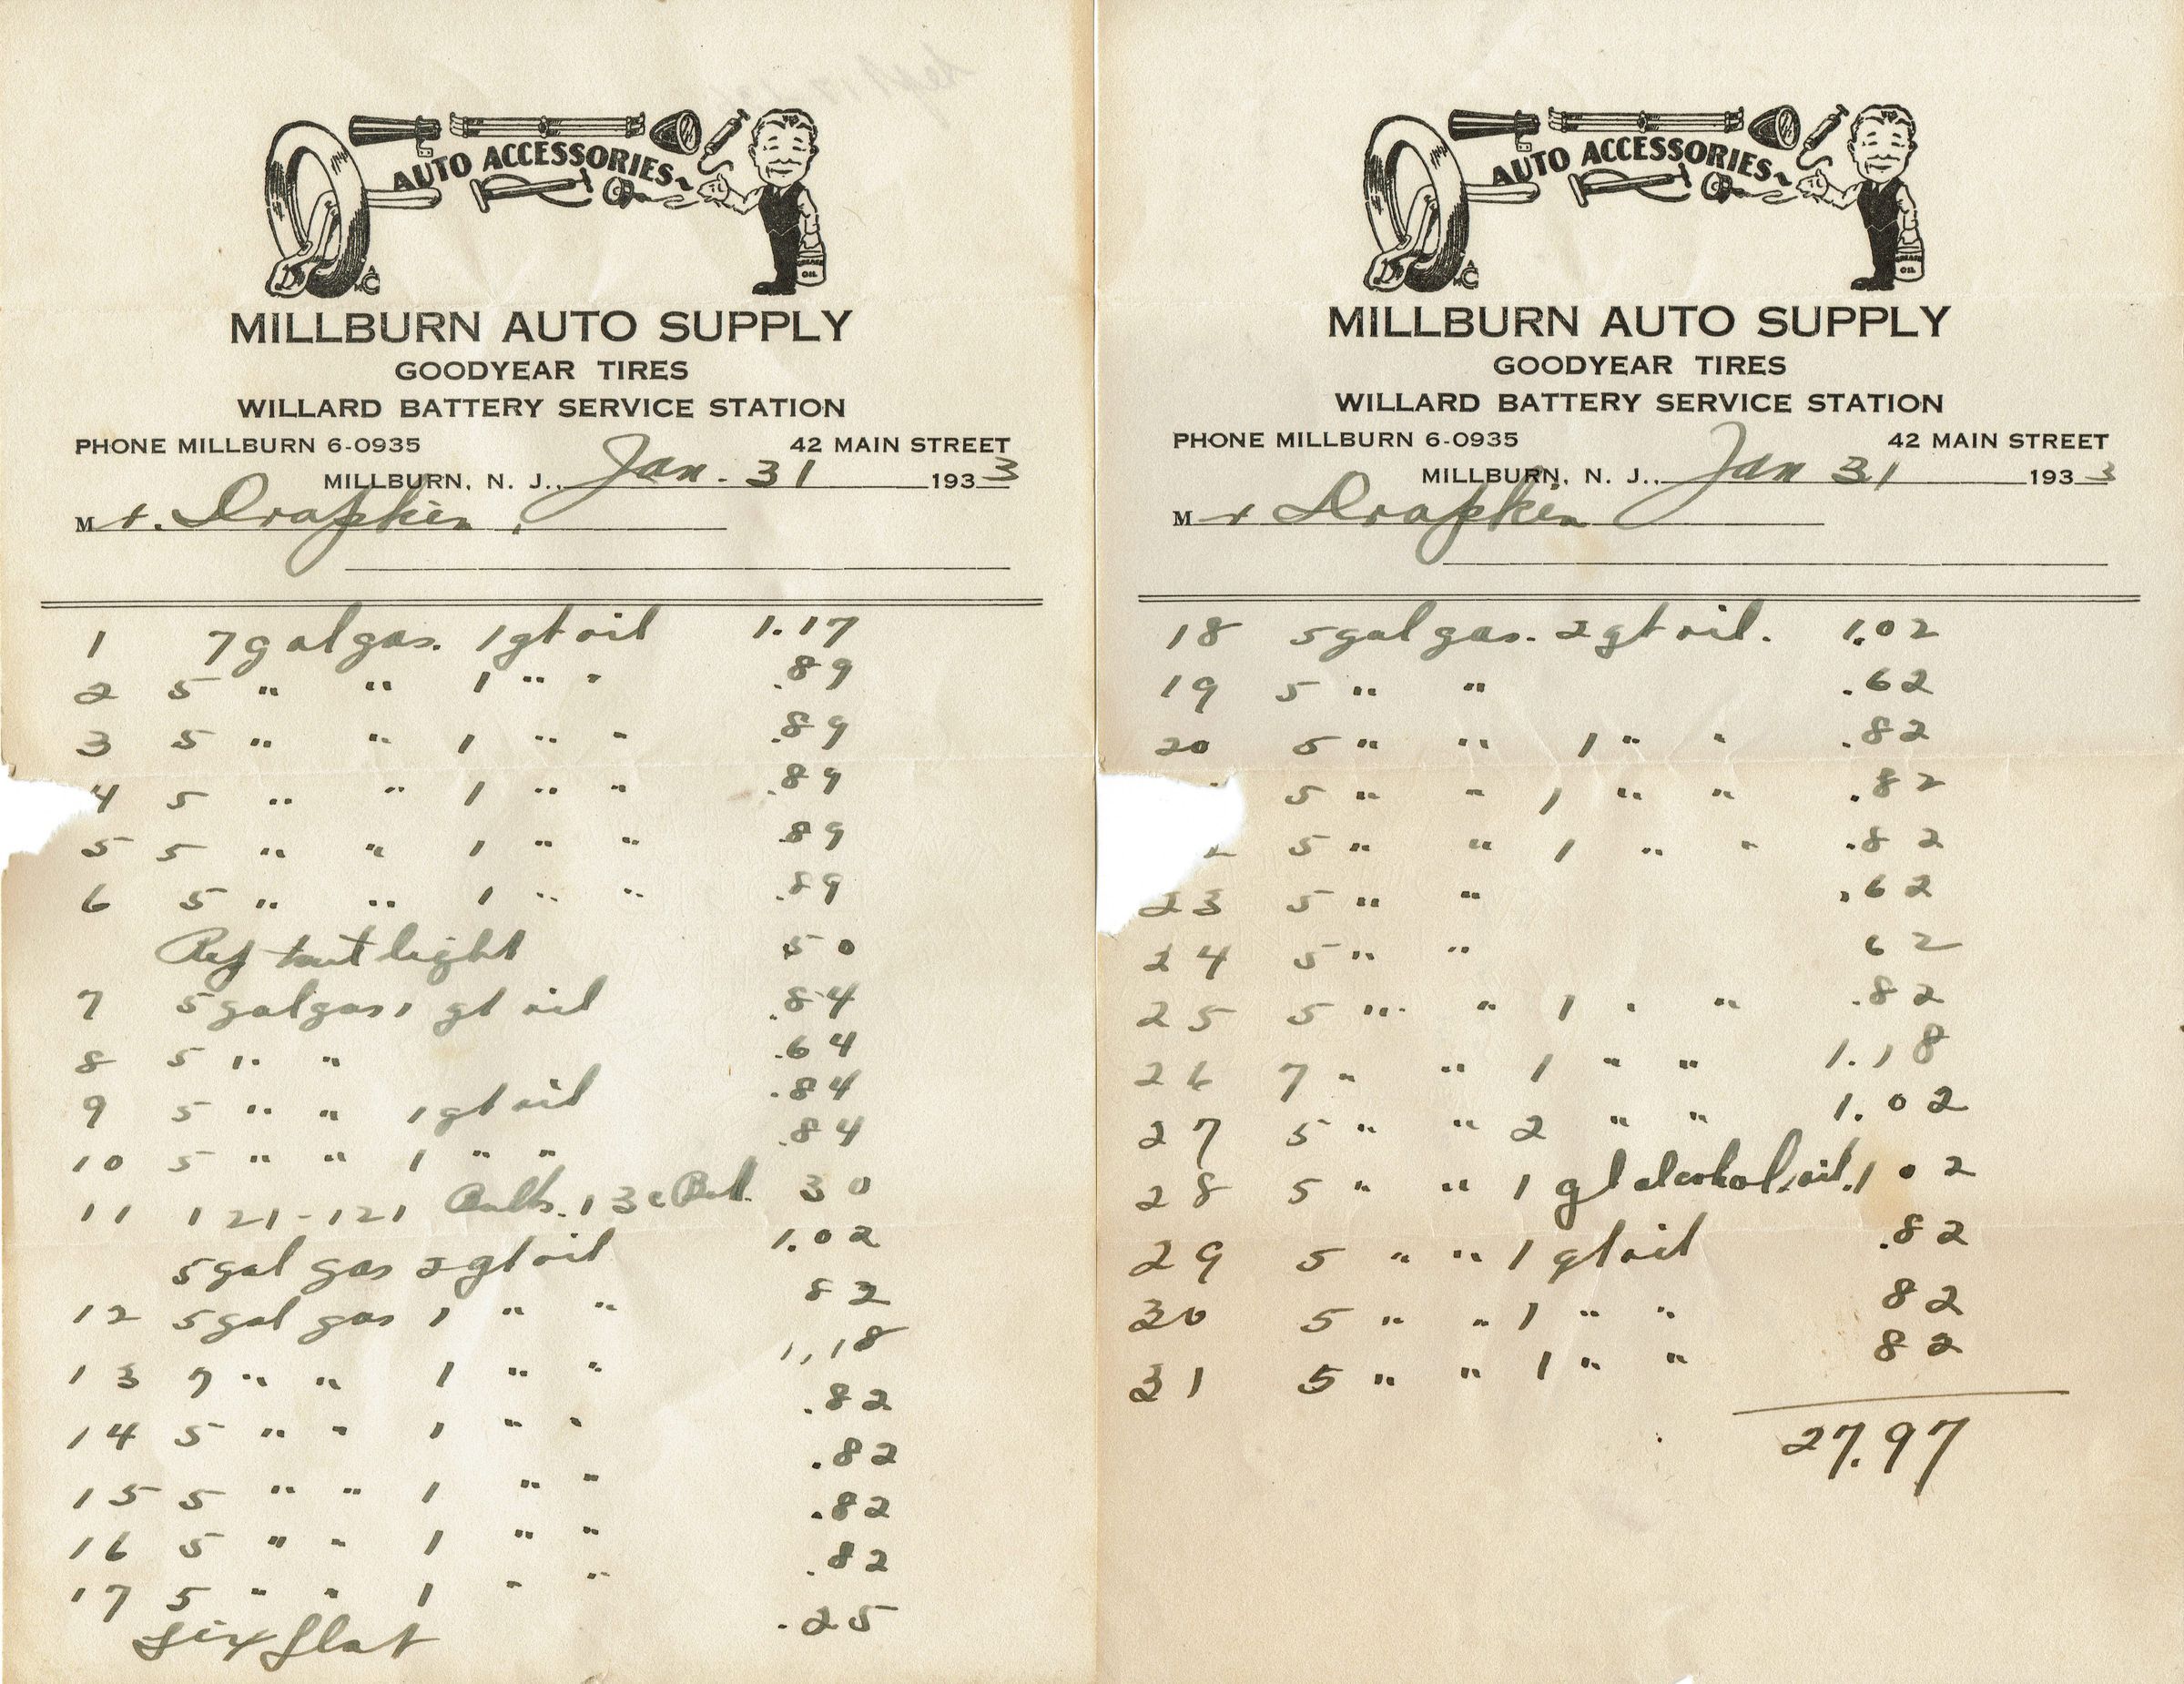 AUTO ACCESSORIES
OIL
MILLBURN AUTO SUPPLY
GOODYEAR TIRES
WILLARD BATTERY SERVICE STATION
PHONE MILLBURN 6-0935 42 MAIN STREET
MILLBURN, N. J., Jan. 31 1933
Mr. Drapkin
1 7 gal gas. 1 qt oil 1.17
2 5 " " 1 " " .89
3 5 " " 1 " " .89
4 5 " " 1 " " .89
5 5 " " 1 " " .89
6 5 " " 1 " " .89
light 50
7 5 gal gas 1 qt oil .84
8 5 " " .64
9 5 " " 1 qt oil .84
10 5 " " 1 " " .84
11 1 21-121 Bulb. 1 3c Bul. 30
5 gal gas 2 qt oil 1.02
12 5 gal gas 1 " " 82
13 7 " " 1 " " 1.18
14 5 " " 1 " " .82
15 5 " " 1 " " .82
16 5 " " 1 " " .82
17 5 " " 1 " " .82
fix flat .25
AUTO ACCESSORIES
OIL
MILLBURN AUTO SUPPLY
GOODYEAR TIRES
WILLARD BATTERY SERVICE STATION
PHONE MILLBURN 6-0935 42 MAIN STREET
MILLBURN, N. J., Jan 31 1933
Mr Drapkin
18 5 gal gas. 2 qt oil. 1.02
19 5 " " .62
20 5 " " 1 " " .82
5 " " 1 " " .82
5 " " 1 " " .82
23 5 " " .62
24 5 " " 62
25 5 " " 1 " " .82
26 7 " " 1 " " 1.18
27 5 " " 2 " " 1.02
28 5 " " 1 qt alcohol, oil. 1 02
29 5 " " 1 qt oil .82
30 5 " " 1 " " 82
31 5 " " 1 " " 82
27.97